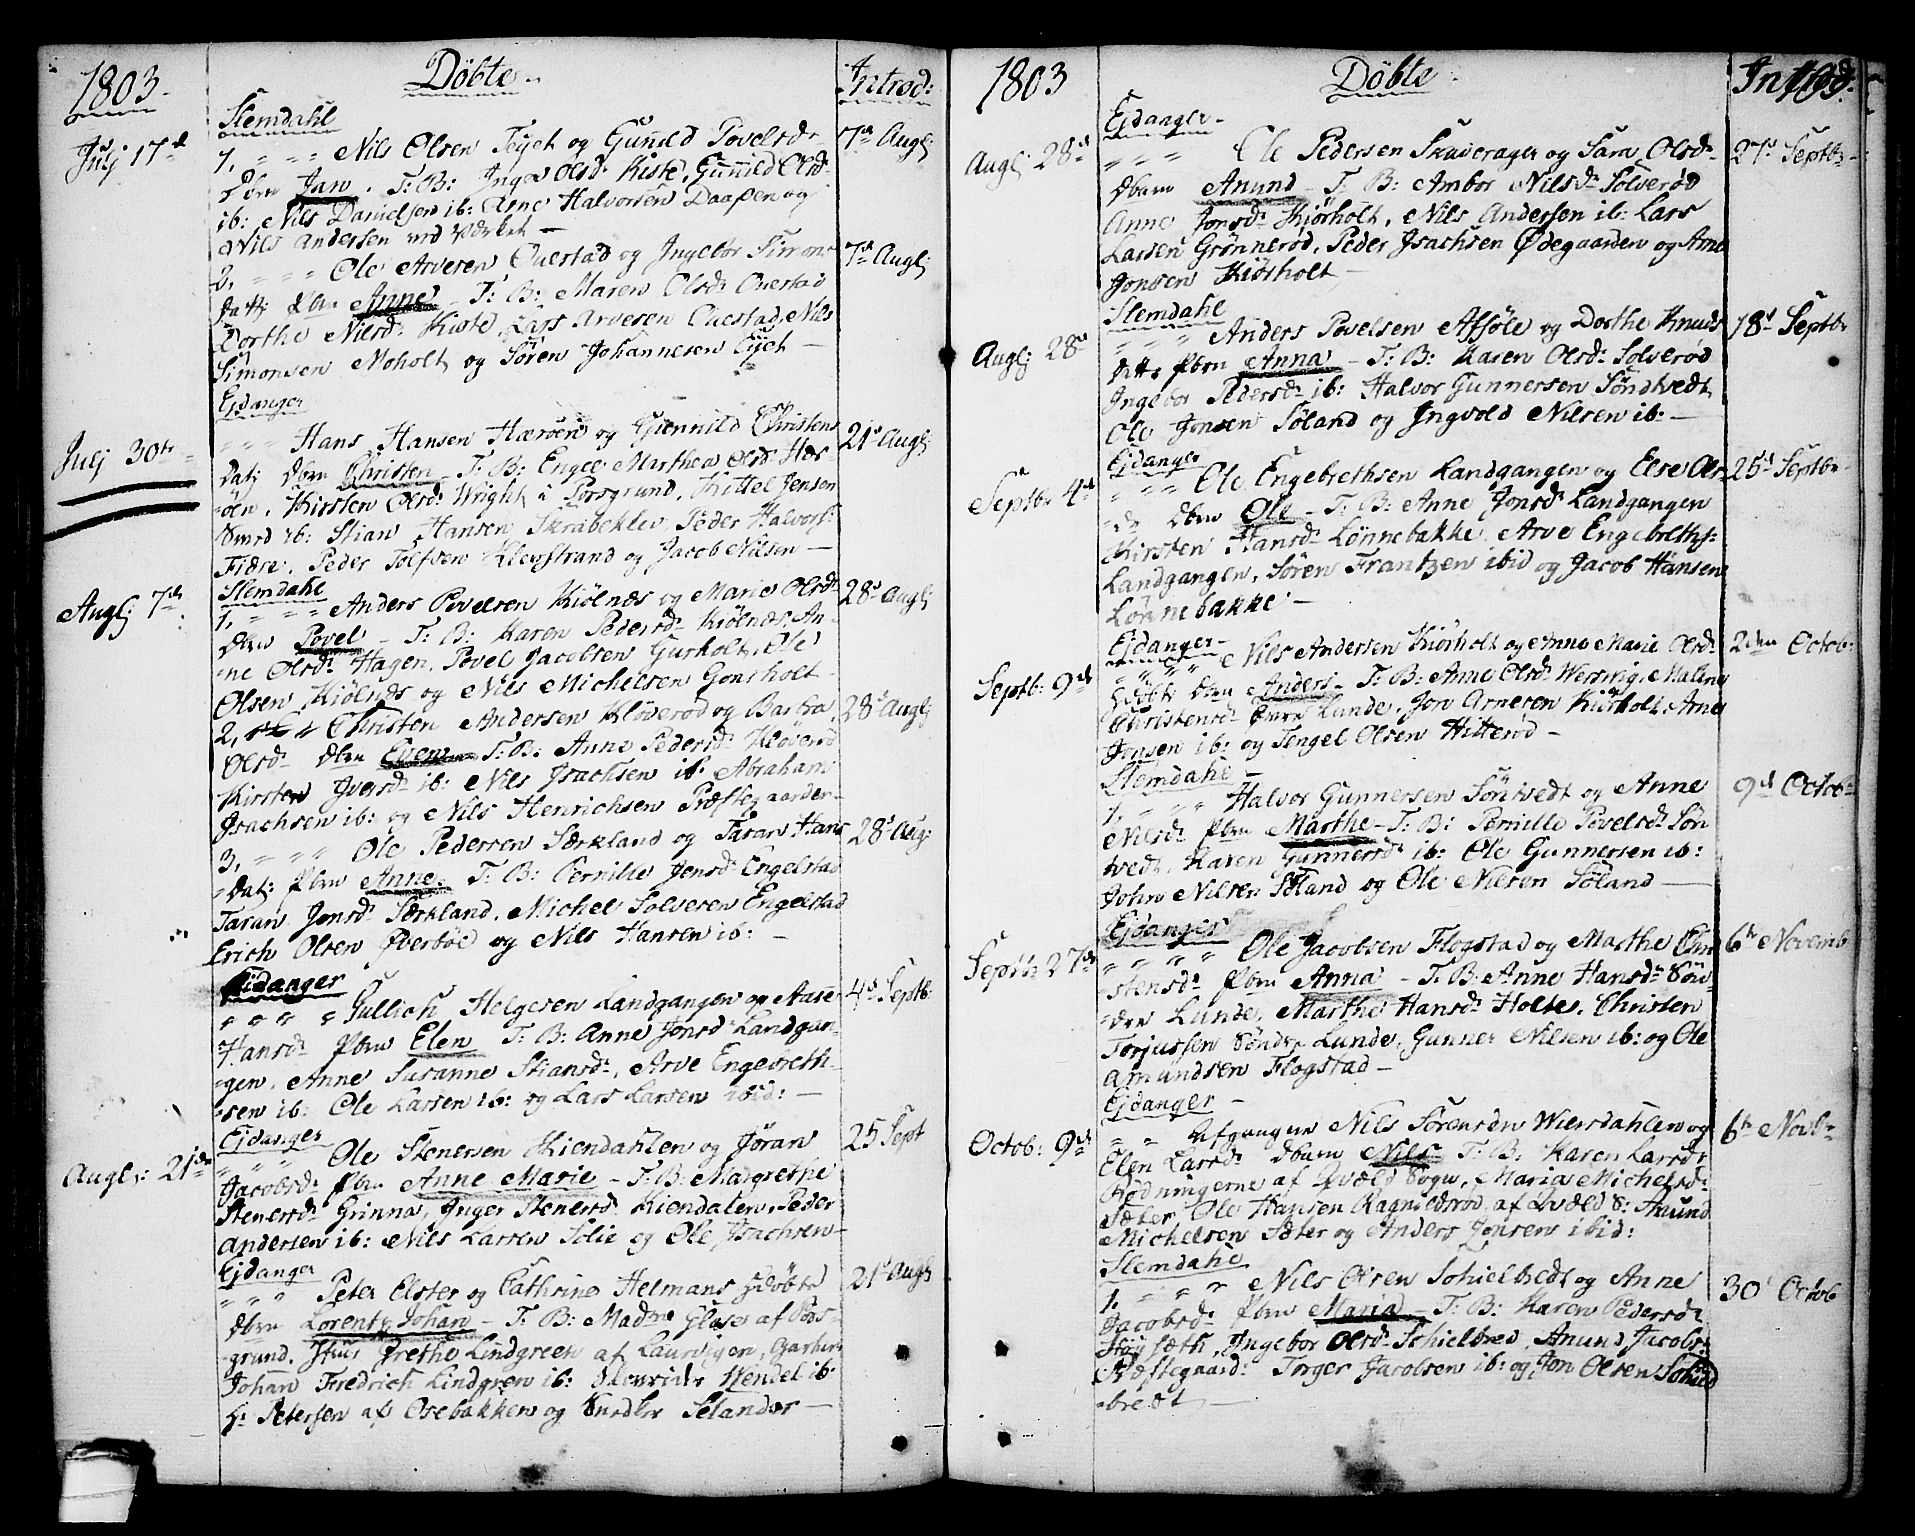 1803. Döbte. Introd:
Slemdahl
Julj 17d 1, " " " Nils Olsen Tyet og Gunild Povelsd: 7d Augl:
Dbrn Jan. T: B: Inger Olsd: Kiste, Gunnild Olsd:
ib: Nils Danielsen ib: Arne Halvorsen Daassen og
Nils Andersen ved Værket —
2, " " " Ole Arvesen Ouestad og Ingebor Simons 7d Augl:
datt: Pbrn Anne — T: B: Maren Olsd: Ouestad
Dorthe Nilsd: Kiste, Lars Arvesen Ouestad, Nils
Simonsen Moholt og Sören Johannesen Tyet —
Ejdanger
Julj 30te " " " Hans Hansen Hæröen og Gunnild Christens 21d Augl:
Dat: Dbrn Christen — T: B: Engel Marthea Olsd: Hær
öen, Kirsten Olsd: Wright i Porsgrund, Kittel Jensen
ib: Stian Hansen Skrabeklev, Peder Halvors:
Fiære, Peder Tolfsen Klevstrand og Jacob Nilsen —
Slemdahl
Augl: 7de 1, " " " Anders Povelsen Kiölnæs og Marie Olsd: 28d Augl:
Dbrn Povel — T: B: Karen Pedersd: Kiölnæs, An-
-ne Olsd: Hagen, Povel Jacobsen Gurholt, Ole
Olsen Kiölnæs og Nils Michelsen Gonsholt —
2, " " Christen Andersen Klöveröd og Barbra 28d Augl:
Olsd: Dbrn Even — T: B: Anne Pedersd: Klöveröd
Kirsten Iversd: ib: Nils Isachsen ib: Abraham
Isachsen ib: og Nils Henrichsen Præstegaarden —
3, " " " Ole Pedersen Særkland og Taran Hans 28d Aug:
-dat: Pbrn Anne. T: B: Pernille Jensd: Engelstad
Taran Jonsd: Særkland, Michel Solvesen Engelstad
Erich Olsen Överböe og Nils Hansen ib: —
Ejdanger
" " " " Gullich Helgesen Landgangen og Aase 4d Septb:
Hansd: Pbrn Elen T: B: Anne Jonsd: Landgan-
-gen, Anne Susanne Stiansd:, Arve Engebreth-
-sen ib: Ole Larsen ib: og Lars Larsen ibid: —
Ejdanger
Augl: 21de " " " Ole Stenersen Kiendahlen og Jöran 25 Sept
Jacobsd: Pbrn Anne Marie — T: B: Margrethe
Stenersd: Grinna, Inger Stenersd: Kiendalen, Peder
Andersen ib: Nils Larsen Solie og Ole Isachsen —
Ejdanger
" " " Peter Elster og Cathrine Helmans hdöbte 21d Augl:
Dbrn Lorentz Johan — T: B: Madme Glase af Pors-
-grund, Grethe Lindgreen af Laurvigen,
Johan Fredrich Lindgren ib: Hendel ib:
Hr Petersen af Osebakken og Selander —
1803 Döbte. Introd:
Ejdanger
Augl: 28d " " " Ole Pedersen Skaverager og Sara Olsd: 27d Septb:
Dbarn Anund — T: B: Ambor Nilsd: Solveröd
Anne Jonsd: Kiörholt, Nils Andersen ib: Lars
Larsen Grönneröd, Peder Isachsen Ödegaarden og Arne
Jonsen Kiörholt —
Slemdahl
Augl: 28d " " " Anders Povelsen Afsöle og Dorthe Knuds 18d Septb:
datt: Pbrn Anna — T: B: Karen Olsd: Solveröd
Ingebor Pedersd: ib: Halvor Gunnersen Söndtvedt
Ole Jonsen Söland og Ingvold Nilsen ib: —
Ejdanger
Septb: 4d " " " Ole Engebrethsen Landgangen og Else Ols- 25d Septbr
-dr Dbrn Ole — T: B: Anne Jonsd: Landgangen
Kirsten Hansd: Lönnebakke, Arve Engebreths:
Landgangen, Sören Frantzen ibid og Jacob Hansen
Lönnebakke —
Ejdanger —
Septb: 9d " " " Nils Andersen Kiörholt og Anne Marie Olsd: 2den Octob:
hdöbt Dbrn Anders — T: B: Anne Olsd: Wersvig, Malene
Christensd: Lunde, Jon Arnesen Kiörholt, Arne
Jonsen ib: og Tengel Olsen Hitteröd —
Slemdahl —
1, " " " Halvor Gunnersen Söntvedt og Anne 9d Octob:
Nilsd: Pbrn Marthe — T: B: Pernille Povelsd: Sön
tvedt, Karen Gunnersd: ib: Ole Gunnersen ib:
John Nilsen Söland og Ole Nilsen Söland —
Ejdanger
Septb: 27de " " " " Ole Jacobsen Flogstad og Marthe Chri 6te Novemb
-stensd: Pbrn Anna — T: B: Anne Hansd: Sön-
-dre Lunde, Marthe Hansd: Holte, Christen
Torjussen Söndre Lunde, Gunner Nilsen ib: og Ole
Amundsen Flogstad —
Ejdanger —
Octob: 9de " " Afgangne Nils Sörensön Wiersdahlen og 6te Novb:
Elen Larsd: Dbarn Nils T: B: Karen Larsd:
Rödningerne af Qvæld Sogn, Maria Michelsd:
Sæter, Ole Hansen Ragnildsröd, af Qvæld S: Anund
Michelsen Sæter og Anders Jensen ibid:
Slemdahl
1, " " " Nils Olsen Schielbredt og Anne 30d Octob
Jacobsd: Pbrn Maria — T: B: Karen Pedersd:
Höysæth, Ingebor Olsd: Schielbred, Anund Jacobs:
Præstegaard: Torger Jacobsen ib: og Jon Olsen Schiel
-bredt —